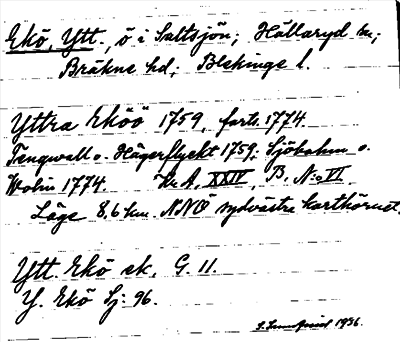 Ekö, Ytt., ö i Saltsjön; Hällaryd sn;
Bräkne hd; Blekinge l.
Yttra Eköö 1759, fort. 1774.
Tengwall o. Hägerflyckt 1759; Sjöbohm o.
Wolin 1774. Kr. A. XXIV, B. N:o VI
Läge 8,6 km. NNÖ sydvästra karthörnet.
Ytt. Ekö sk. G. 11.
Y. Ekö Sj: 96.
1936.